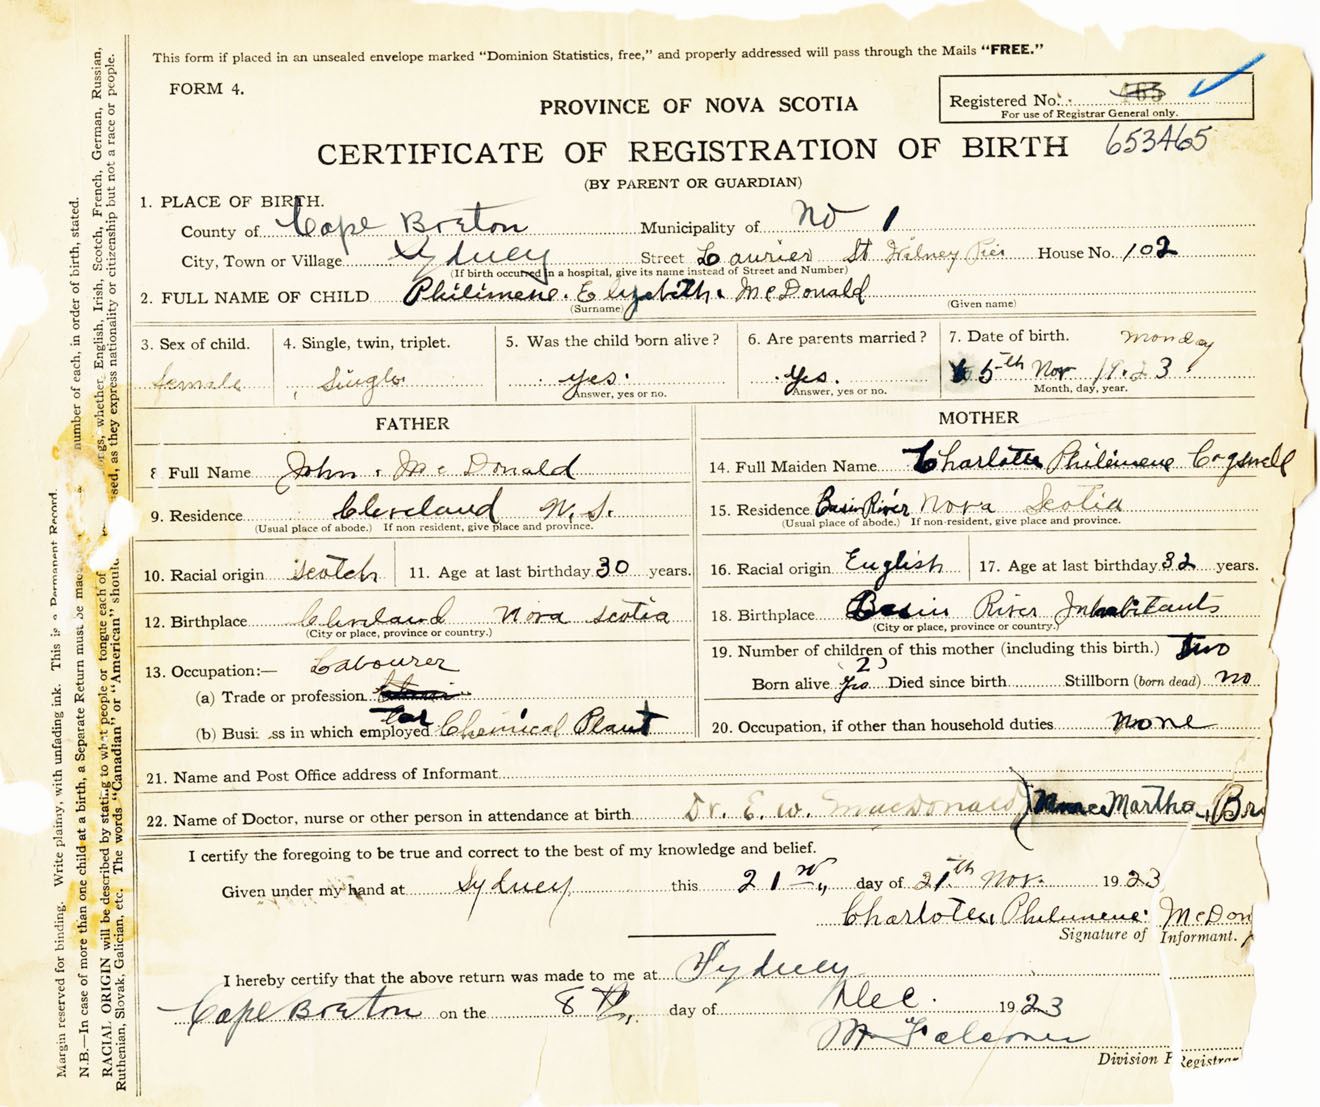 This form if placed in an unsealed envelope marked "Dominion Statistics, free," and properly addressed will pass through the Mails "FREE."
FORM 4.
PROVINCE OF NOVA SCOTIA
Registered No.
For use of Registrar General only.
653465
CERTIFICATE OF REGISTRATION OF BIRTH
(BY PARENT OR GUARDIAN)
1. PLACE OF BIRTH.
County of Cape Breton Municipality of No 1
City, Town or Village Sydney Street Laurier St Whitney Pier House No. 102
(If birth occurred in a hospital, give its name instead of Street and Number)
2. FULL NAME OF CHILD Philimene. Elyzabith. McDonald
(Surname) (Given name)
3. Sex of child. 4. Single, twin, triplet. 5. Was the child born alive? 6. Are parents married? 7. Date of birth. Monday
female Single yes. yes. 5th Nov 1923
Answer, yes or no. Answer, yes or no. Month, day, year.
FATHER MOTHER
8 Full Name John. McDonald 14. Full Maiden Name Charlotte Philimene Cogswell
9. Residence Cleveland N.S. 15. Residence Basin River Nova Scotia
(Usual place of abode.) If non resident, give place and province. (Usual place of abode.) If non-resident, give place and province.
10. Racial origin Scotch 11. Age at last birthday 30 years. 16. Racial origin English 17. Age at last birthday 32 years.
12. Birthplace Cleveland Nova Scotia 18. Birthplace Basin River Inhabitants
(City or place, province or country.) (City or place, province or country.)
13. Occupation:— Labourer 19. Number of children of this mother (including this birth.) two
(2)
(a) Trade or profession Born alive yes Died since birth Stillborn (born dead) no
(b) Busi ss in which employed Tar Chemical Plant 20. Occupation, if other than household duties none
21. Name and Post Office address of Informant
22. Name of Doctor, nurse or other person in attendance at birth Dr. E. W. MacDonald) Martha
I certify the foregoing to be true and correct to the best of my knowledge and belief.
Given under my hand at Sydney this 21 day of 21th Nov. 1923
Charlotte. Philumene. McDon
Signature of Informant.
I hereby certify that the above return was made to me at Sydney
Cape Breton on the 8th day of Dec. 1923
Falconer
Division Registrar
Margin reserved for binding. Write plainly, with unfading ink. This is a Permanent Record.
N.B.—In case of more than one child at a birth, a Separate Return must be made number of each, in order of birth, stated.
RACIAL ORIGIN will be described by stating to what people or tongue each of ngs, whether English, Irish, Scotch, French, German, Russian,
Ruthenian, Slovak, Galician, etc. The words "Canadian" or "American" should sed, as they express nationality or citizenship but not a race or people.